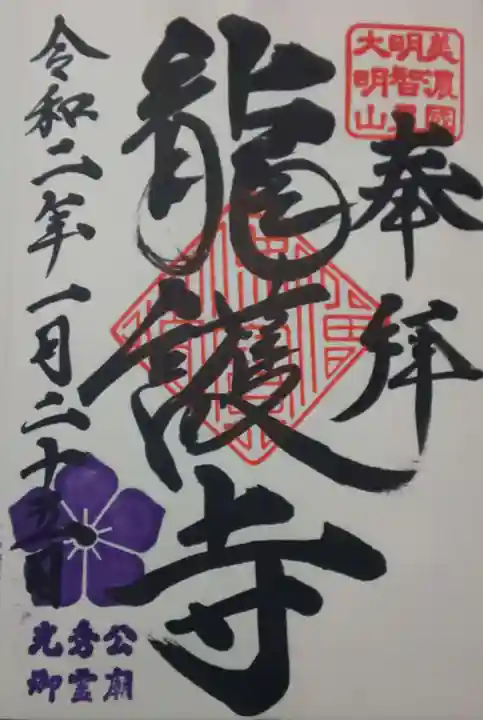 美濃國
明智里
大明山
奉拝
龍護寺
令和二年一月二十五日
光秀公
御霊廟